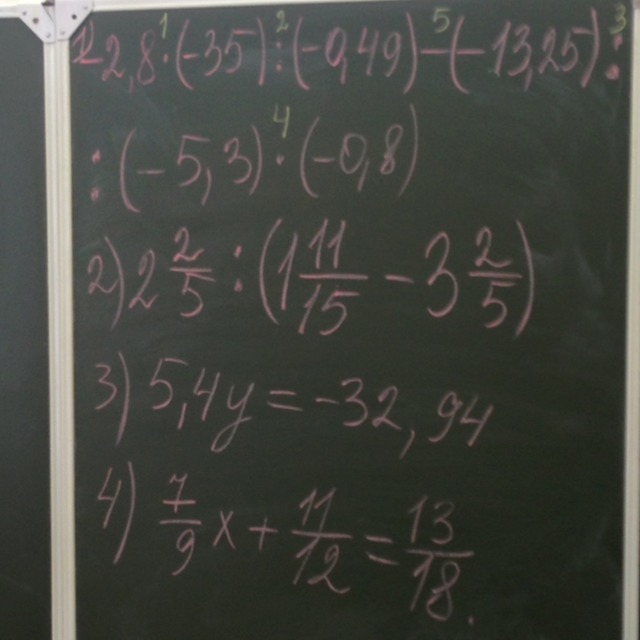 1 2 5 3
-2,8·(-35):(-0,49)-(-13,25):
4
:(-5,3)·(-0,8)
2) 2 2/5 : (1 11/15 - 3 2/5)
3) 5,4y = -32,94
4) 7/9 x + 11/12 = 13/18.